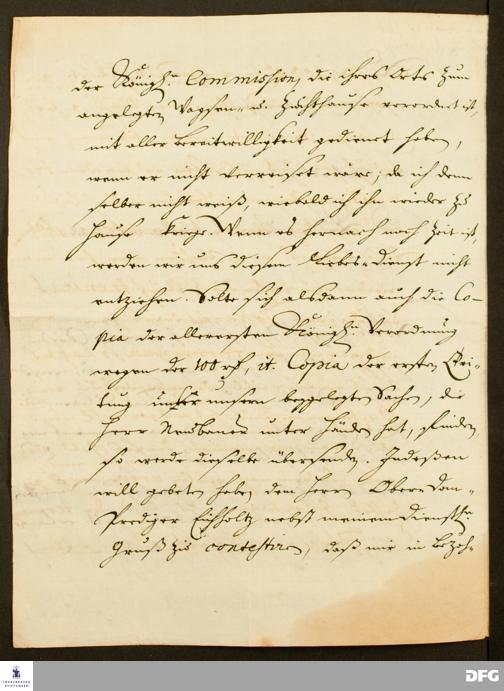 der Königl.n Commission, die ihres Orts zum
angelegten Waysen- u. Zuchthause verordnet ist,
mit aller bereitwilligkeit gedienet haben,
wenn er nicht verreiset wäre; da ich denn
selber nicht weiß, wie bald ich ihn wieder zu
Hause kriege. Wenn es hernach noch Zeit ist,
werden wir uns diesem Liebes-dienst nicht
entziehen. Solte sich alsdann auch die Co-
pia der allerersten Königl.n Verordnung
wegen der 100 rth, it. Copia der ersten
tung unsern beygelegten Sachen, die
Herr Neubauer unter Händen hat, finden,
so werde dieselbe übersenden. Indeßen
will gebeten haben dem Herrn Ober-Dom-
Prediger Eichholtz nebst meinem Dienstl.n
Gruß zu contestiren, daß mir in
FRANCKESCHE STIFTUNGEN
DFG